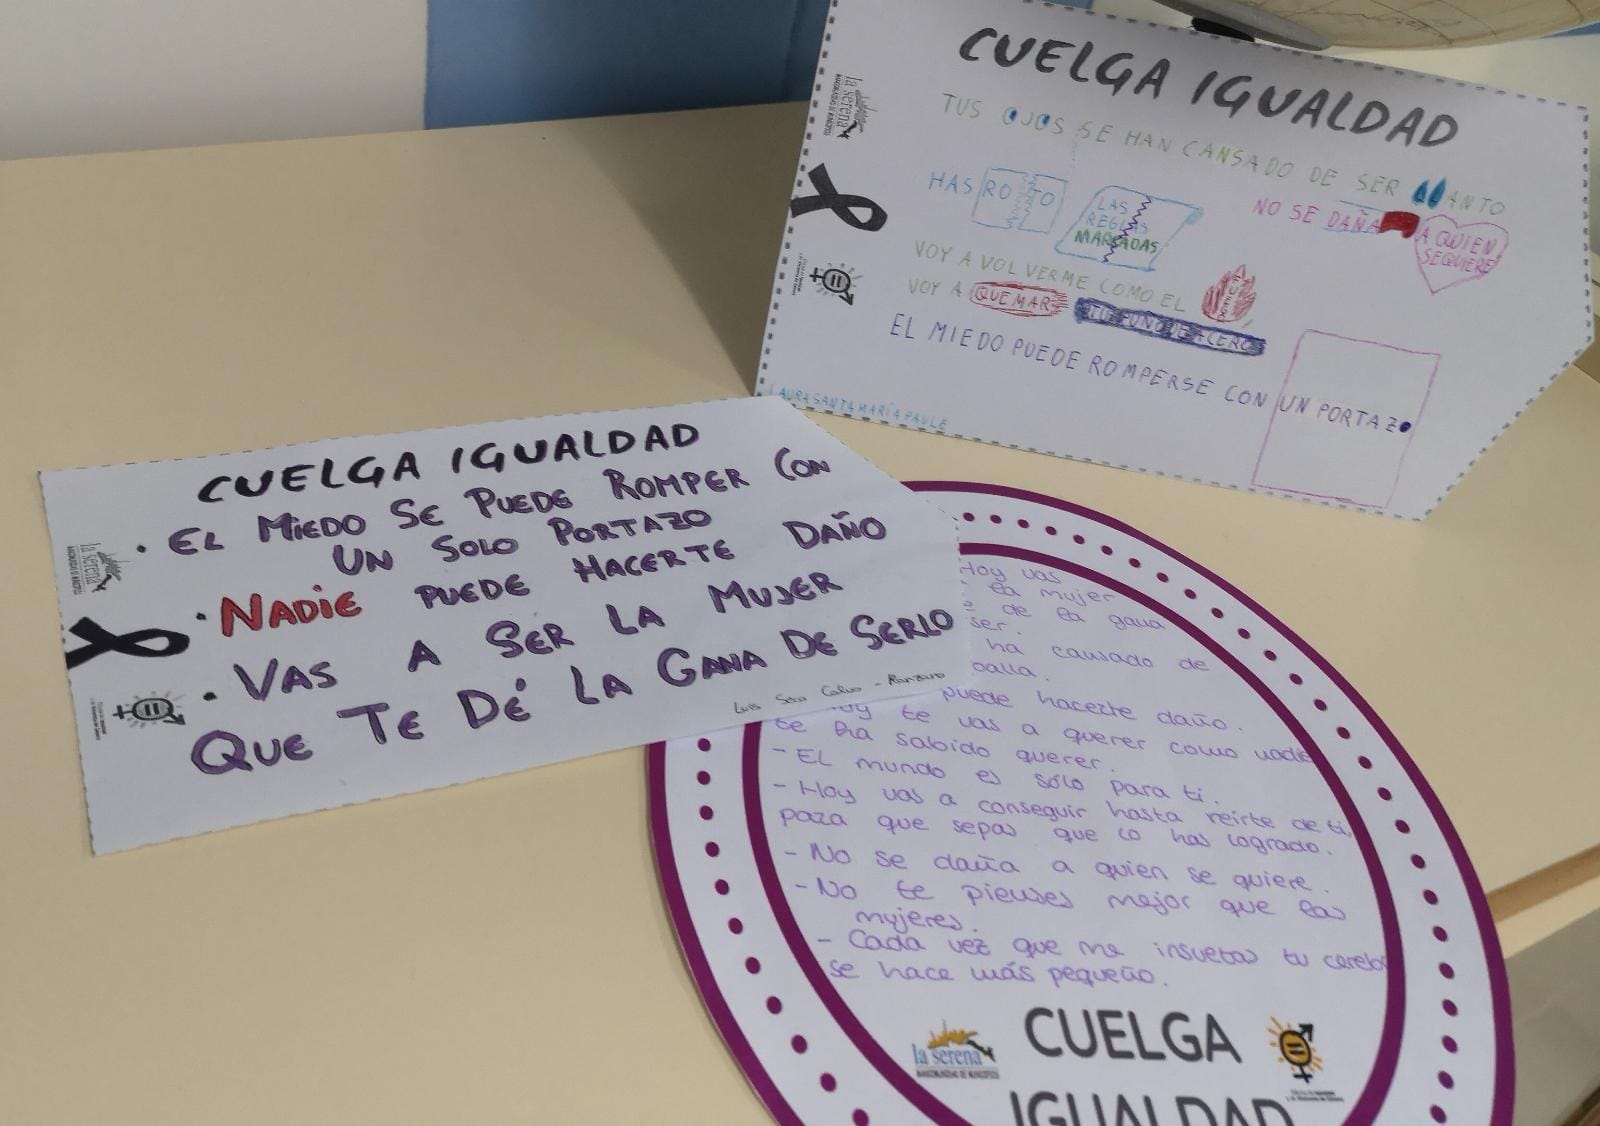 CUELGA IGUALDAD
TUS OJOS SE HAN CANSADO DE SER LLANTO
HAS ROTO LAS REGLAS MARCADAS
NO SE DAÑA A QUIEN SE QUIERE
VOY A VOLVERME COMO EL FUEGO
VOY A QUEMAR TU PUÑO DE ACERO
EL MIEDO PUEDE ROMPERSE CON UN PORTAZO
LAURA SANTAMARÍA PAULE
la serena
MANCOMUNIDAD DE MUNICIPIOS
CUELGA IGUALDAD
· EL MIEDO SE PUEDE ROMPER CON
UN SOLO PORTAZO
· NADIE PUEDE HACERTE DAÑO
· VAS A SER LA MUJER
QUE TE DÉ LA GANA DE SERLO
Luis
la serena
MANCOMUNIDAD DE MUNICIPIOS
Hoy vas
la mujer
de la gana
ser.
ha causado de
puede hacerte daño.
te vas a querer como nadie
te ha sabido querer.
- El mundo es sólo para ti.
- Hoy vas a conseguir hasta reirte de ti,
para que sepas que lo has logrado.
- No se daña a quien se quiere.
- No te pienses mejor que las
mujeres.
- Cada vez que me insultas tu cerebro
se hace más pequeño.
CUELGA
IGUALDAD
la serena
MANCOMUNIDAD DE MUNICIPIOS